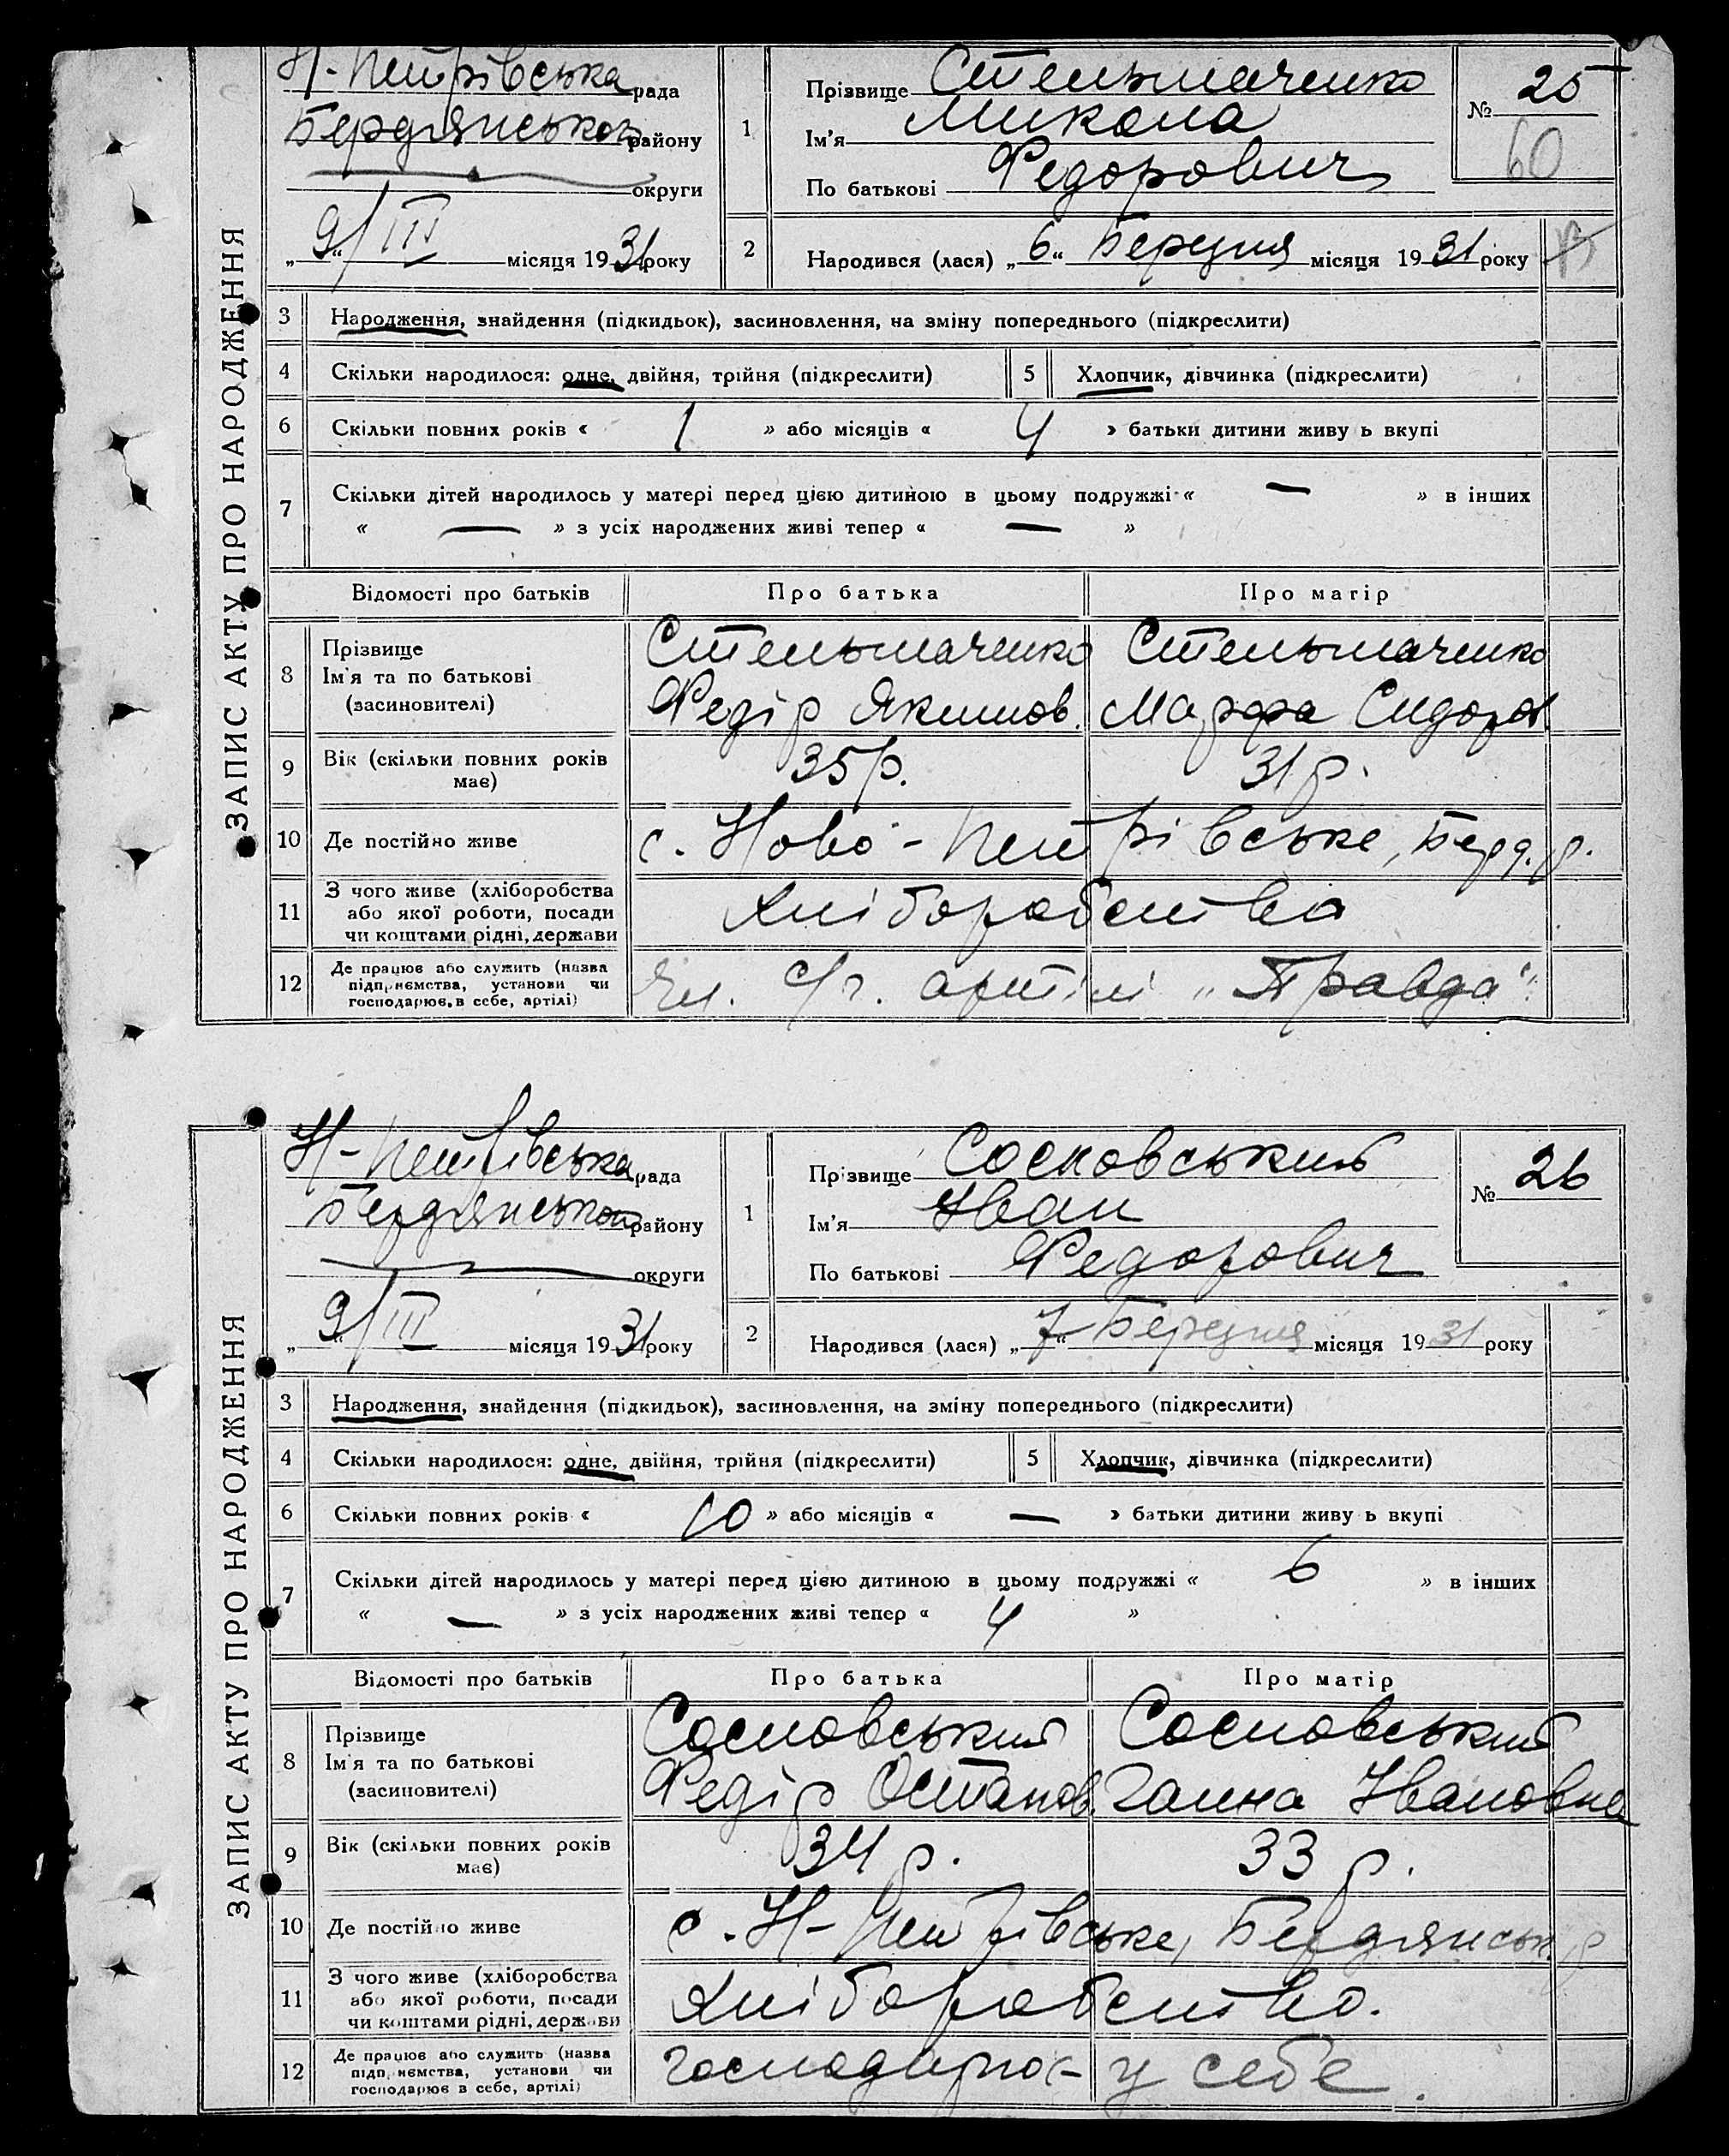 ЗАПИС АКТУ ПРО НАРОДЖЕННЯ
Н-Петрівська рада
Бердянського району
округи
„9“/III місяця 1931 року
1
Прізвище Стельмаченко
Ім'я Микола
По батькові Федорович
№ 25
60
2
Народився (лася) „6“ Березня місяця 1931 року
3 Народження, знайдення (підкидьок), засиновлення, на зміну попереднього (підкреслити)
4 Скільки народилося: одне, двійня, трійня (підкреслити) 5 Хлопчик, дівчинка (підкреслити)
6 Скільки повних років « 1 » або місяців « 4 » батьки дитини живу ь вкупі
7 Скільки дітей народилось у матері перед цією дитиною в цьому подружжі « — » в інших
« — » з усіх народжених живі тепер « — »
Відомості про батьків Про батька Про матір
8 Прізвище Стельмаченко Стельмаченко
Ім'я та по батькові Федір Якимов. Марфа Сидоров.
(засиновителі)
9 Вік (скільки повних років 35 р. 31 р.
має)
10 Де постійно живе с. Ново-Петрівське, Берд. р.
11 З чого живе (хліборобства
або якої роботи, посади Хліборобства
чи коштами рідні, держави
12 Де працює або служить (назва
підприємства, установи чи Чл. С/г. артілі „Правда“
господарює в себе, артілі)
ЗАПИС АКТУ ПРО НАРОДЖЕННЯ
Н-Петрівська рада
Бердянського району
округи
„9“/III місяця 1931 року
1
Прізвище Сосновський
Ім'я Іван
По батькові Федорович
№ 26
2
Народився (лася) „7“ Березня місяця 1931 року
3 Народження, знайдення (підкидьок), засиновлення, на зміну попереднього (підкреслити)
4 Скільки народилося: одне, двійня, трійня (підкреслити) 5 Хлопчик, дівчинка (підкреслити)
6 Скільки повних років « 10 » або місяців « — » батьки дитини живу ь вкупі
7 Скільки дітей народилось у матері перед цією дитиною в цьому подружжі « 6 » в інших
« — » з усіх народжених живі тепер « 4 »
Відомості про батьків Про батька Про матір
8 Прізвище Сосновський Сосновський
Ім'я та по батькові Федір Остапов. Ганна Ивановна
(засиновителі)
9 Вік (скільки повних років 34 р. 33 р.
має)
10 Де постійно живе с. Н-Петрівське, Бердянськ р
11 З чого живе (хліборобства
або якої роботи, посади Хліборобство.
чи коштами рідні, держави
12 Де працює або служить (назва
підприємства, установи чи господарює у себе.
господарює в себе, артілі)